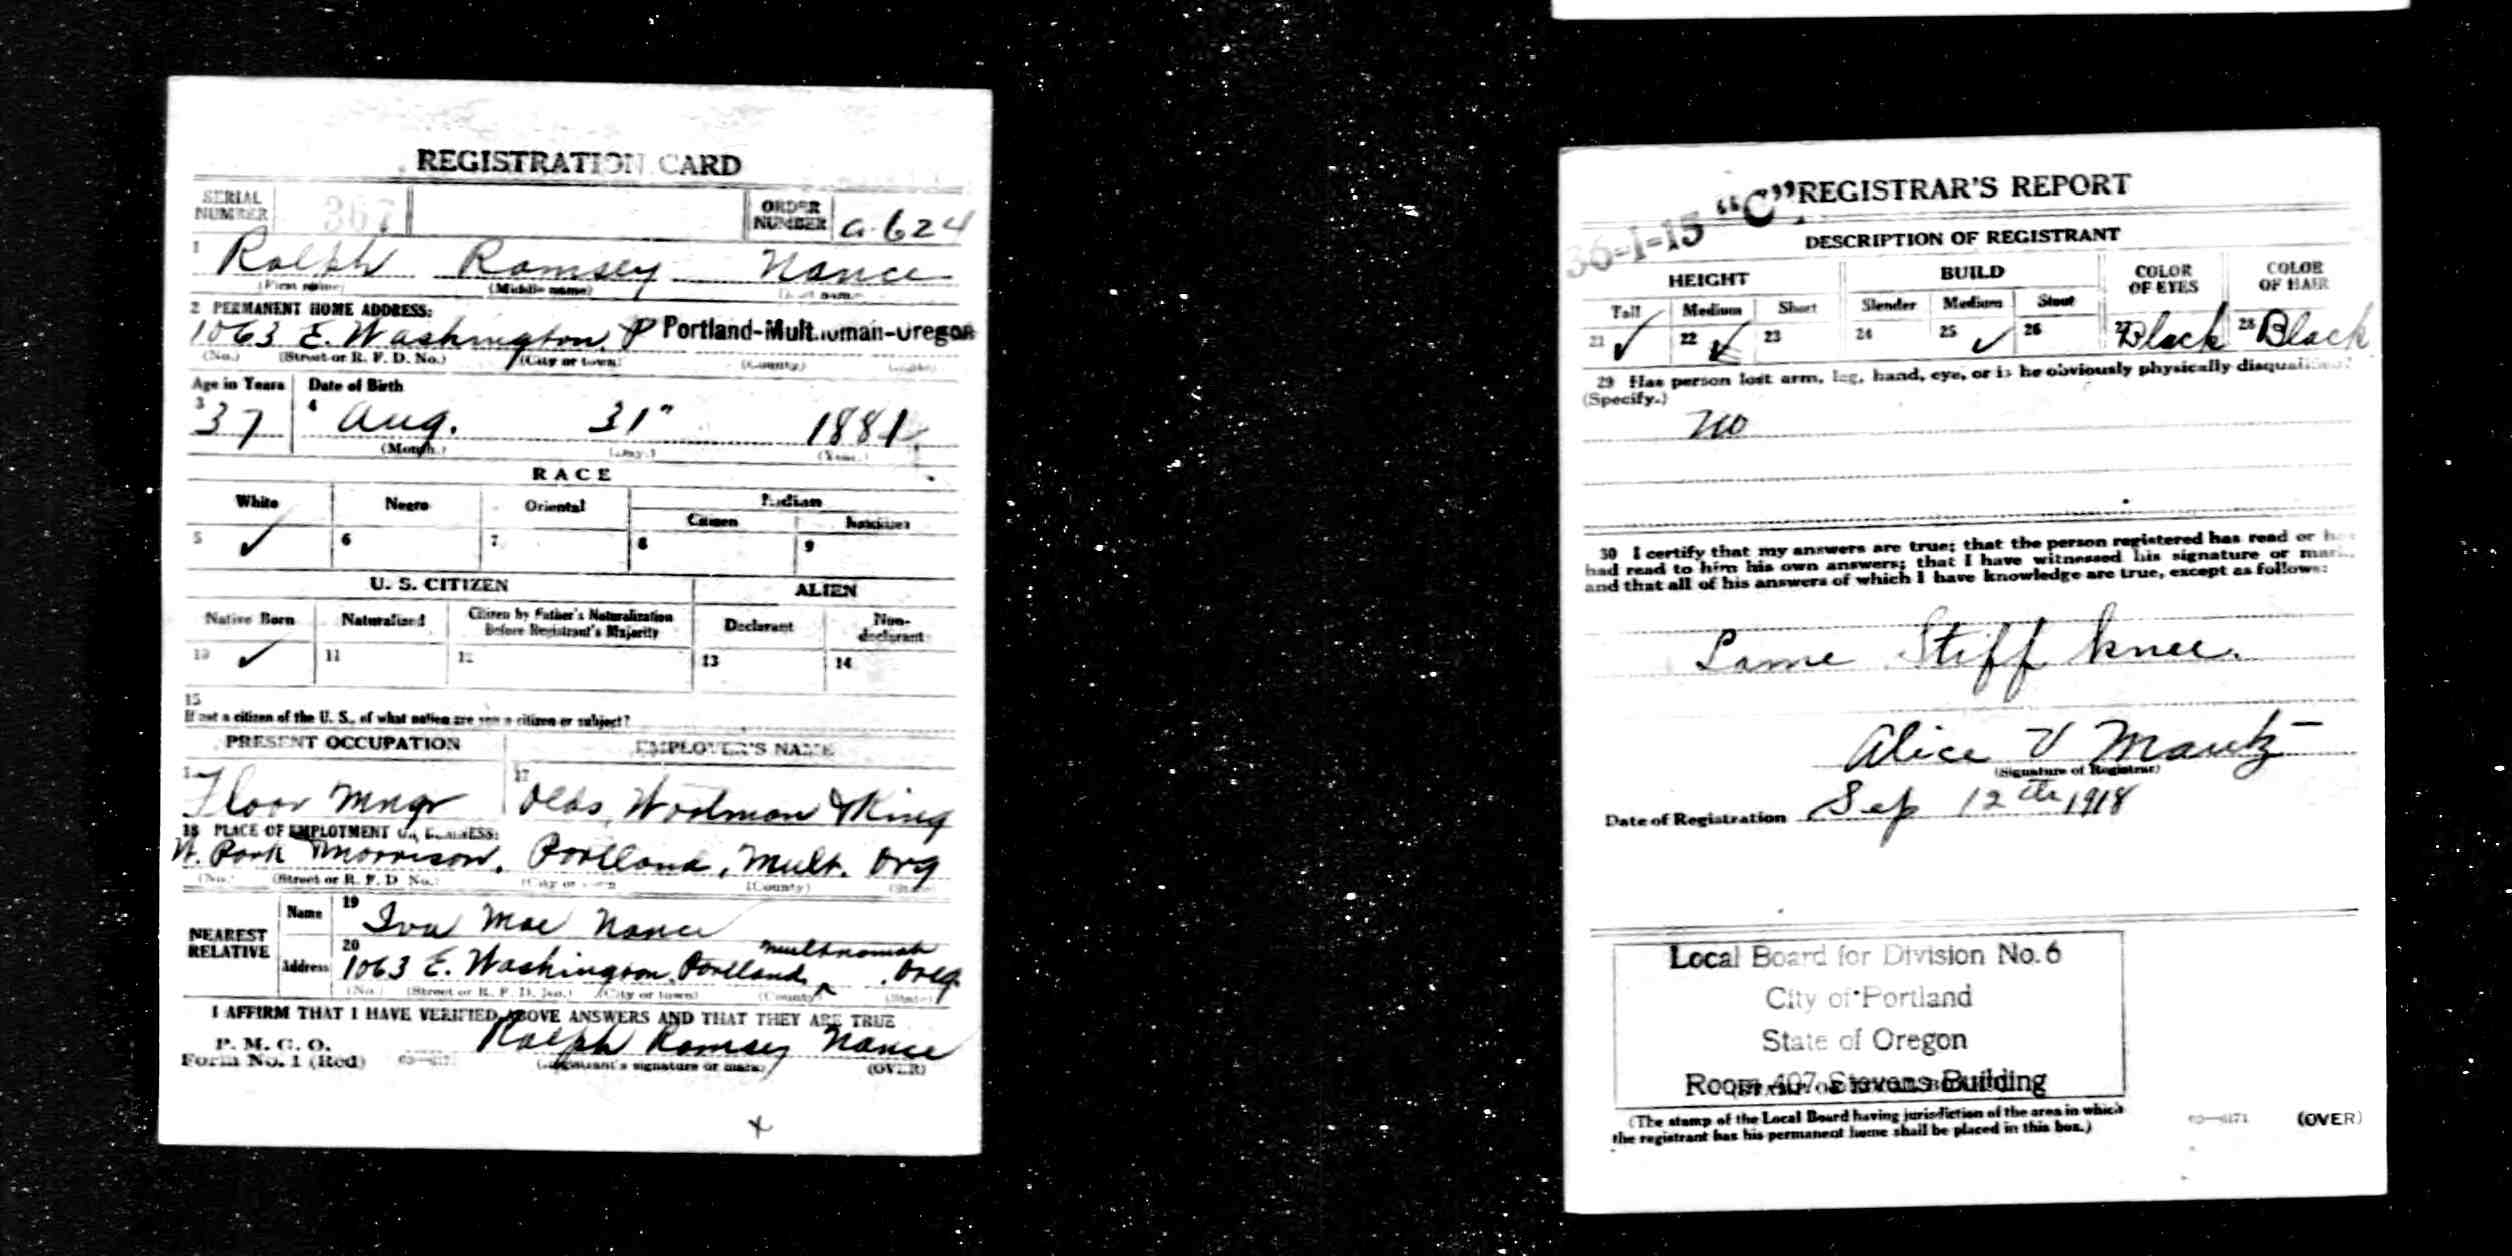 REGISTRATION CARD
SERIAL NUMBER 367 ORDER NUMBER a-624
1 Ralph Ramsey Nance
(First name) (Middle name) (Last name)
2 PERMANENT HOME ADDRESS:
1063 E. Washington, P Portland-Multnoman-Oregon
(No.) (Street or R. F. D. No.) (City or town) (County) (State)
Age in Years Date of Birth
3 37 4 Aug. 31" 1881
(Month.) (Day.) (Year.)
RACE
White Negro Oriental Indian
Citizen Noncitizen
5 ✓ 6 7 8 9
U. S. CITIZEN ALIEN
Native Born Naturalized Citizen by Father's Naturalization Before Registrant's Majority Declarant Non-declarant
10 ✓ 11 12 13 14
15
If not a citizen of the U. S., of what nation are you a citizen or subject?
PRESENT OCCUPATION EMPLOYER'S NAME
Floor Mngr 17 Olds, Wortman & King
18 PLACE OF EMPLOYMENT OR BUSINESS:
W. Park Morrison, Portland, Mult. Org
(No.) (Street or R. F. D. No.) (City or town) (County) (State)
NEAREST RELATIVE
Name 19 Iva Mae Nance
Address 20 1063 E. Washington, Portland, Multnomah, Oreg.
(No.) (Street or R. F. D. No.) (City or town) (County) (State)
I AFFIRM THAT I HAVE VERIFIED ABOVE ANSWERS AND THAT THEY ARE TRUE
P. M. G. O.
Form No. 1 (Red) Ralph Ramsey Nance
(Registrant's signature or mark) (OVER)
x
36-1-15 "C" REGISTRAR'S REPORT
DESCRIPTION OF REGISTRANT
HEIGHT BUILD COLOR OF EYES COLOR OF HAIR
Tall Medium Short Slender Medium Stout
21 ✓ 22 ✓ 23 24 25 ✓ 26 27 Black 28 Black
29 Has person lost arm, leg, hand, eye, or is he obviously physically disqualified?
(Specify.)
no
30 I certify that my answers are true; that the person registered has read or has
had read to him his own answers; that I have witnessed his signature or mark,
and that all of his answers of which I have knowledge are true, except as follows:
Lame Stiff knee.
Alice V Mautz
(Signature of Registrar)
Date of Registration Sep 12th 1918
Local Board for Division No. 6
City of Portland
State of Oregon
Room 407 Stevens Building
(The stamp of the Local Board having jurisdiction of the area in which
the registrant has his permanent home shall be placed in this box.)
03—6171 (OVER)